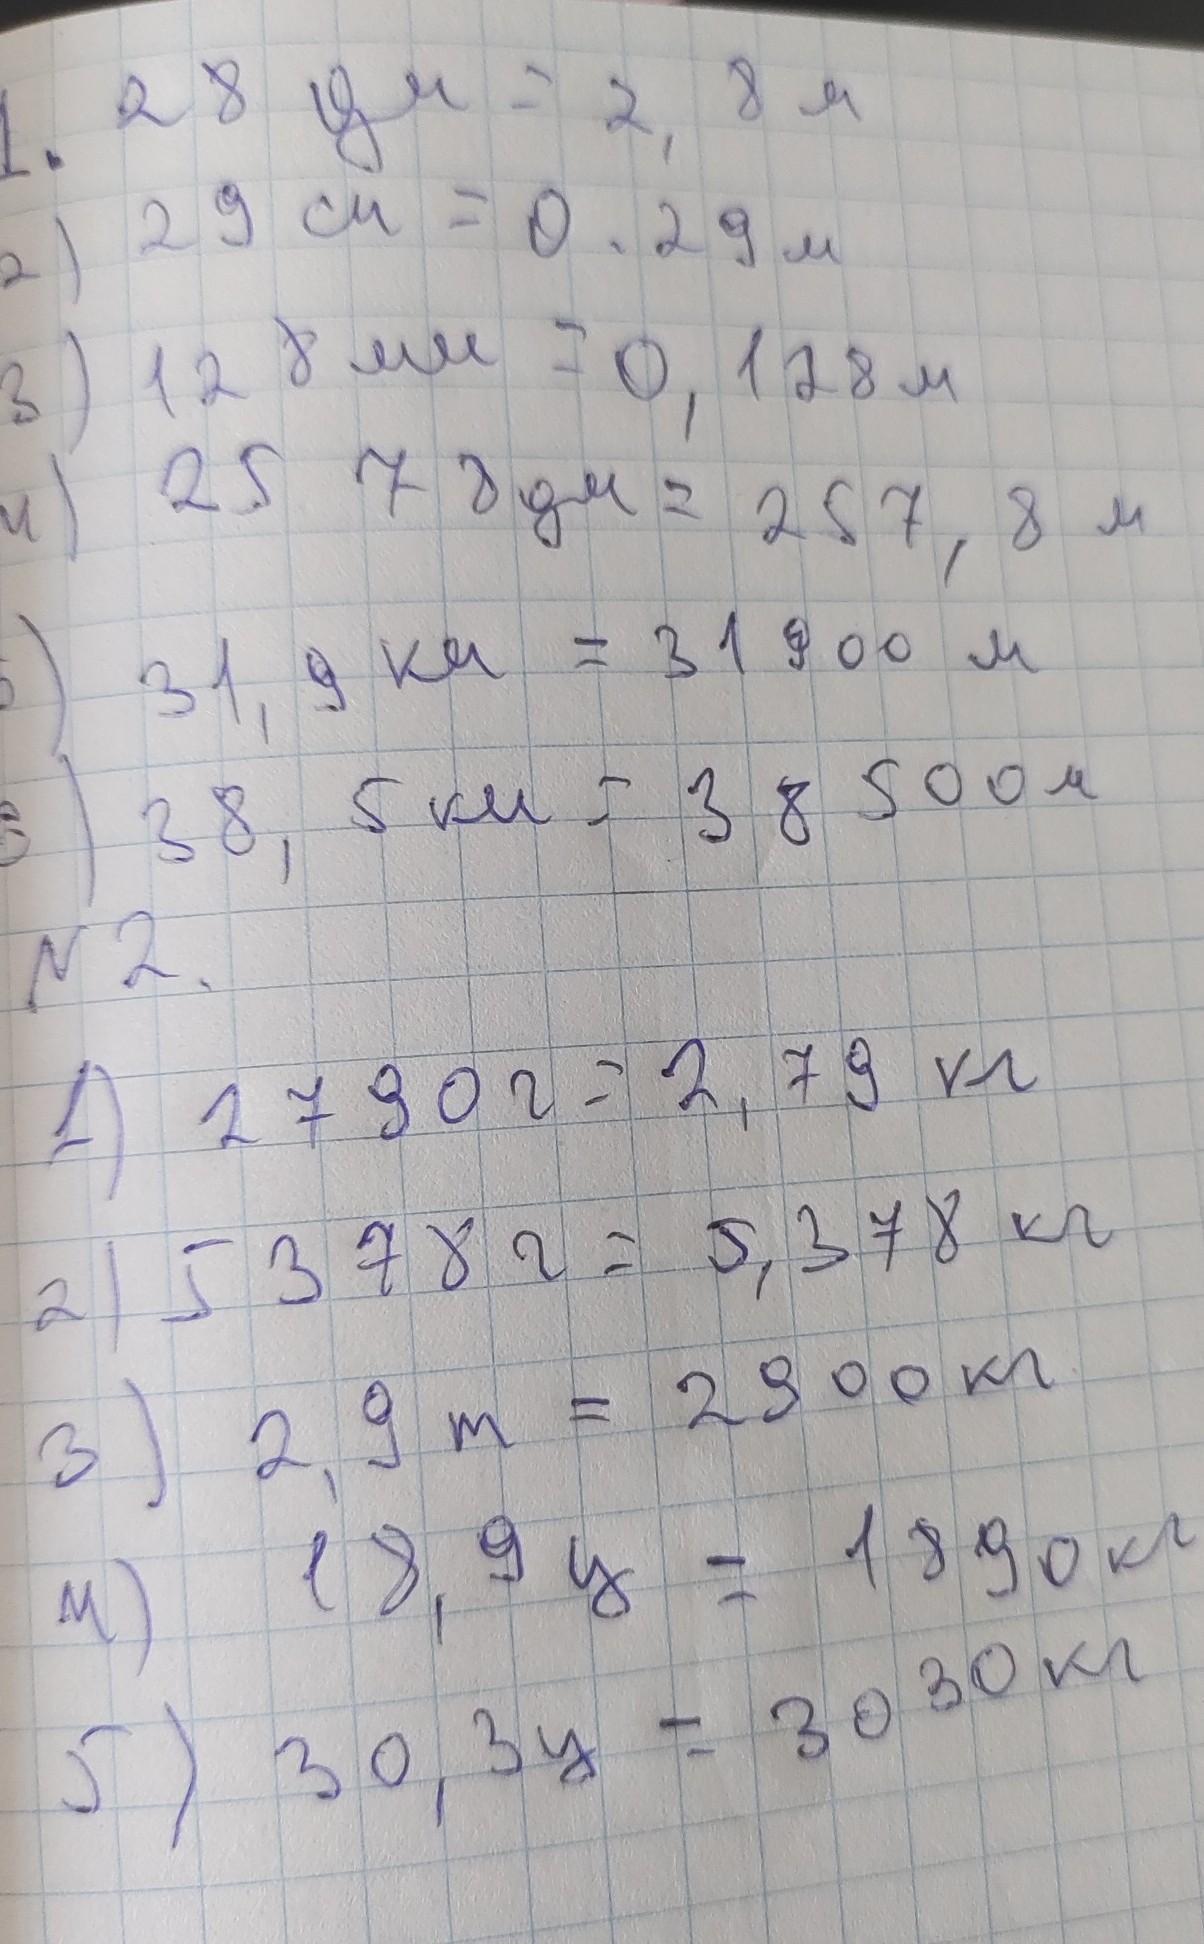 1. 28 дм = 2,8 м
2) 29 см = 0.29 м
3) 128 мм = 0,128 м
4) 2578 дм = 257,8 м
5) 31,9 км = 31900 м
6) 38,5 км = 38500 м
N 2.
1) 2790 г = 2,79 кг
2) 5378 г = 5,378 кг
3) 2,9 т = 2900 кг
4) 18,9 ц = 1890 кг
5) 30,3 ц = 3030 кг